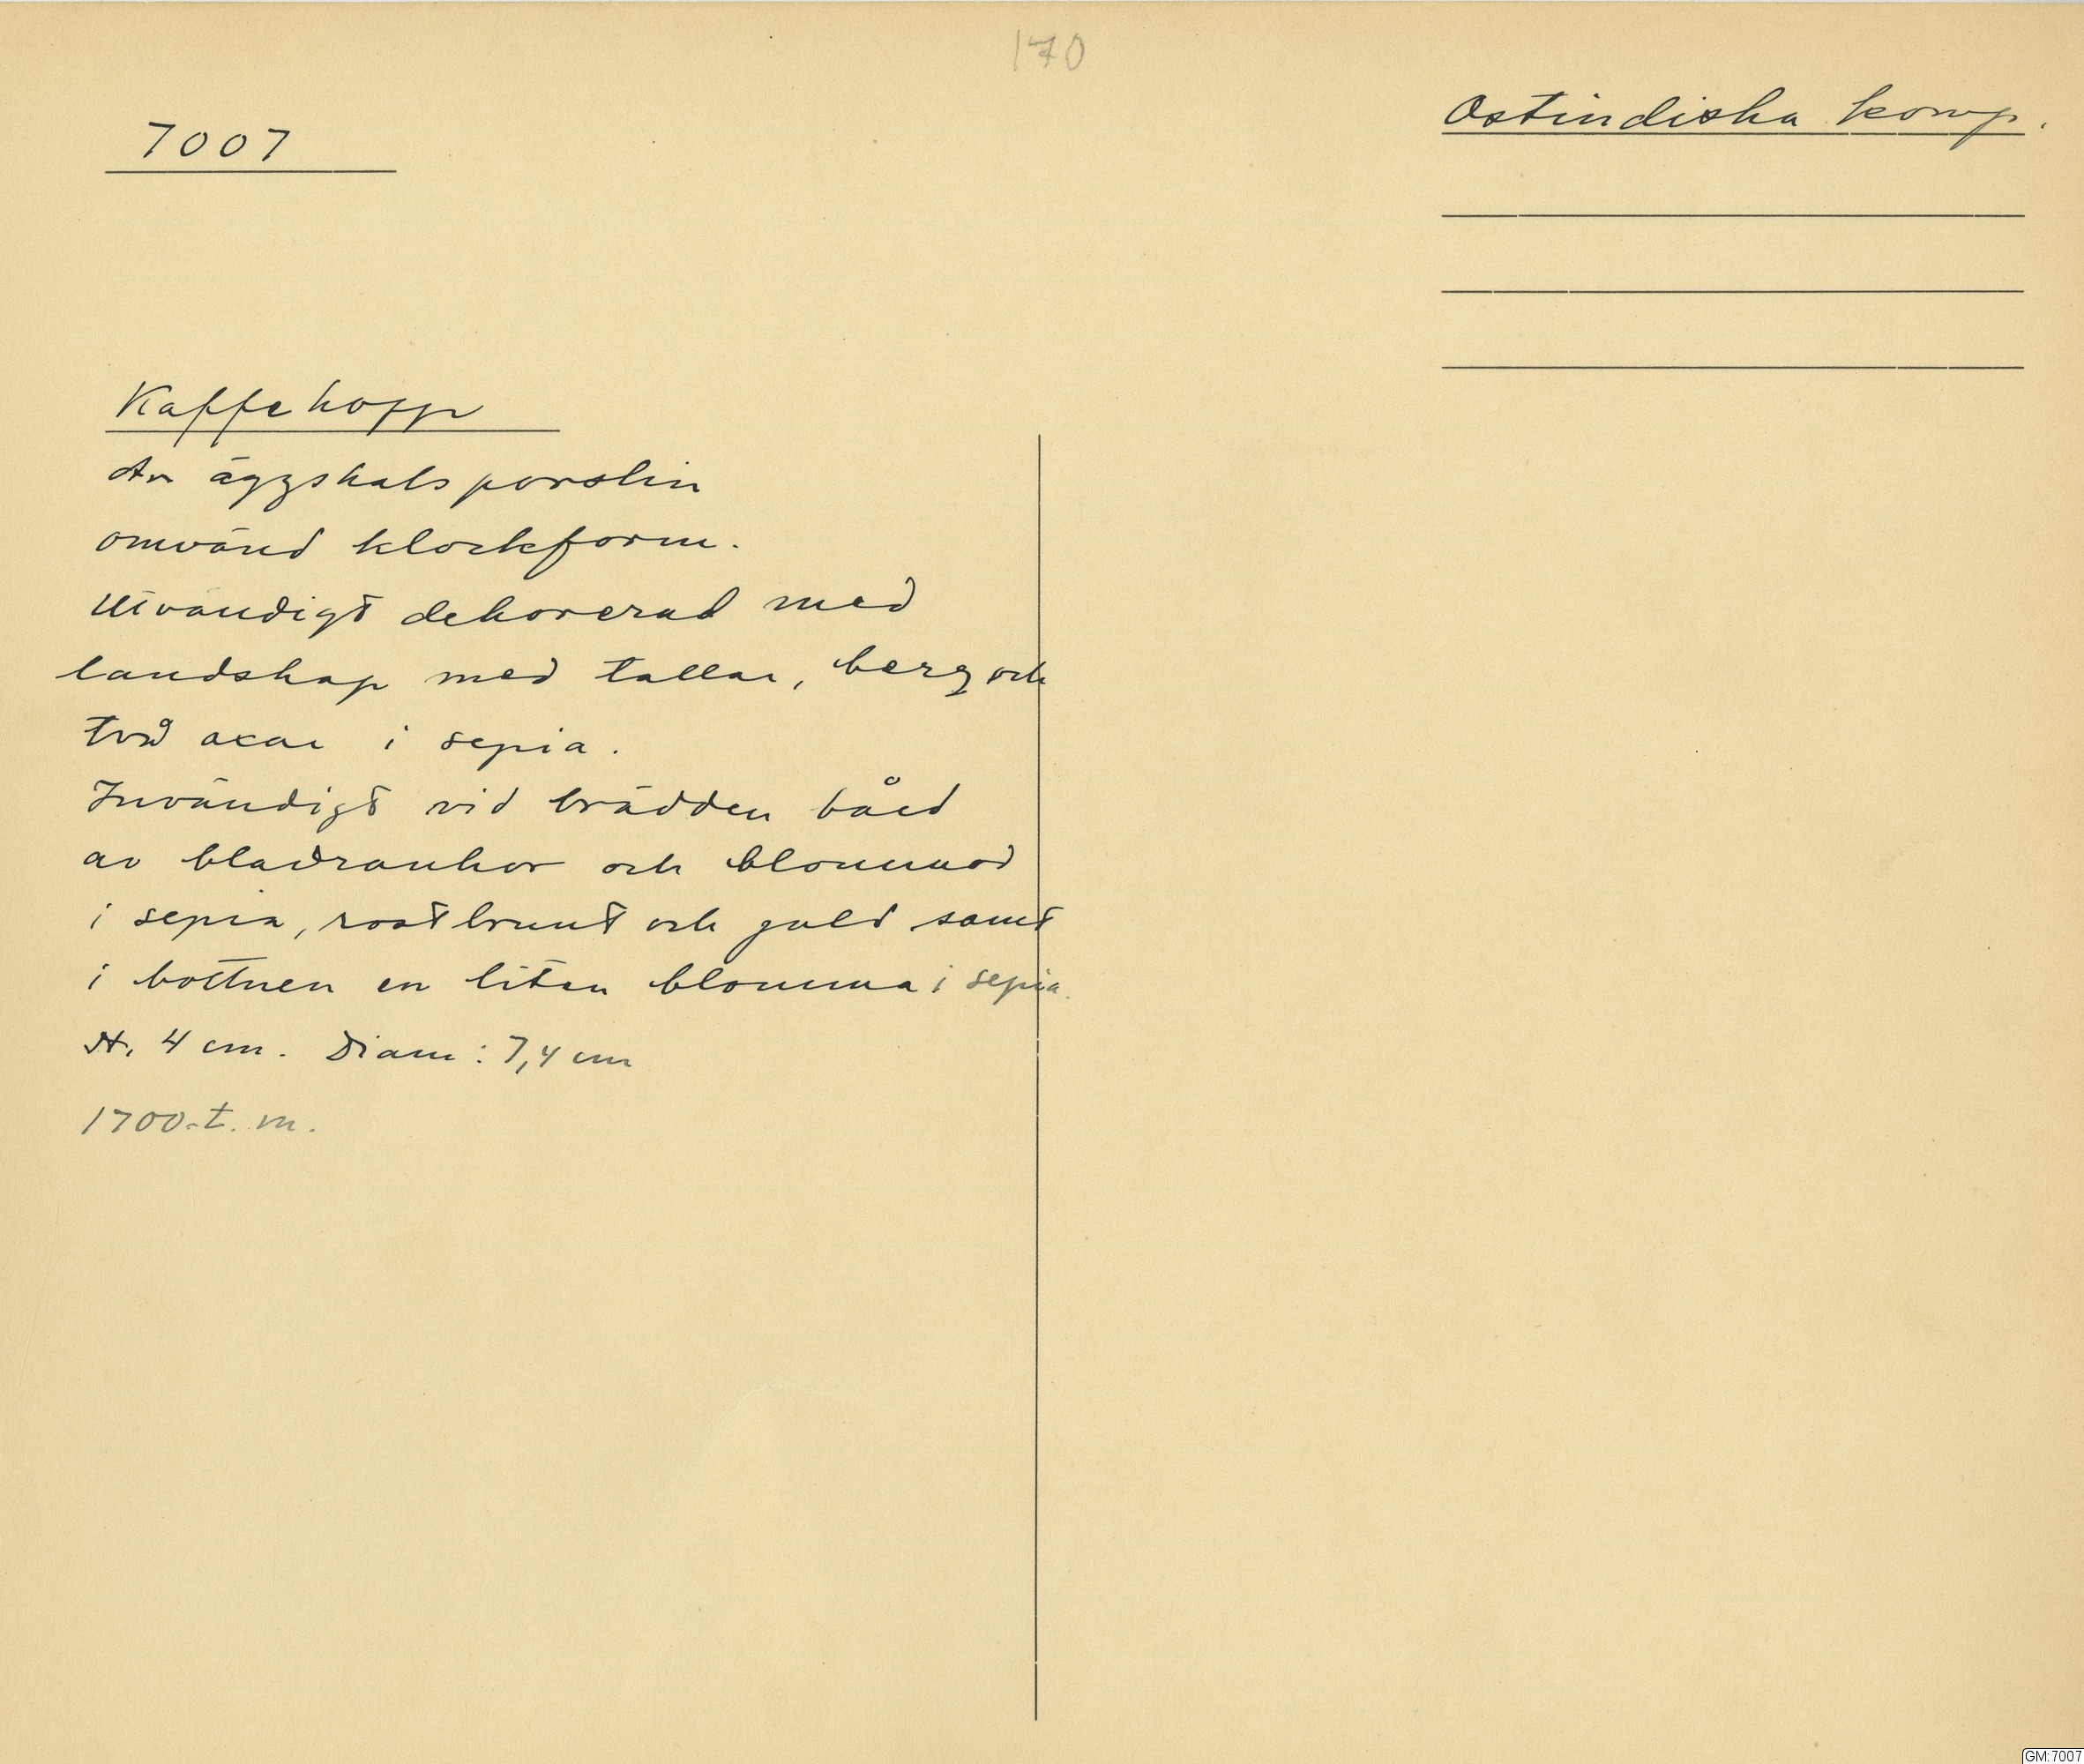 170
7007
Ostindiska komp.
Kaffekopp
Av äggskalsporslin
omvänd klockform.
Utvändigt dekorerad med
landskap med tallar, berg och
två oxar i sepia.
Invändigt vid brädden bård
av bladrankor och blommor
i sepia, rostbrunt och guld samt
i bottnen en liten blomma i sepia.
H. 4 cm. Diam: 7,4 cm
1700-t. m.
GM:7007